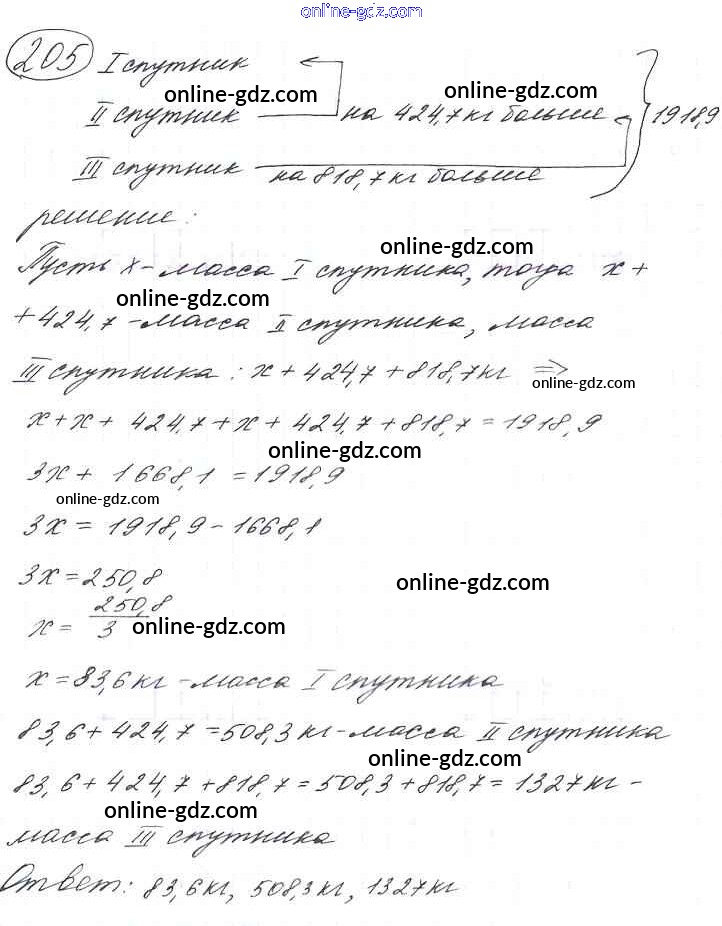 online-gdz.com
205 I спутник
online-gdz.com online-gdz.com
II спутник на 424,7 кг больше 1918,9
III спутник на 818,7 кг больше
решение:
online-gdz.com
Пусть x - масса I спутника, тогда x +
online-gdz.com
+ 424,7 - масса II спутника, масса
III спутника : x + 424,7 + 818,7 кг =>
online-gdz.com
x + x + 424,7 + x + 424,7 + 818,7 = 1918,9
online-gdz.com
3x + 1668,1 = 1918,9
online-gdz.com
3x = 1918,9 - 1668,1
3x = 250,8
online-gdz.com
x = 250,8/3
online-gdz.com
x = 83,6 кг - масса I спутника
83,6 + 424,7 = 508,3 кг - масса II спутника
online-gdz.com
83,6 + 424,7 + 818,7 = 508,3 + 818,7 = 1327 кг -
online-gdz.com
масса III спутника
Ответ: 83,6 кг, 508,3 кг, 1327 кг